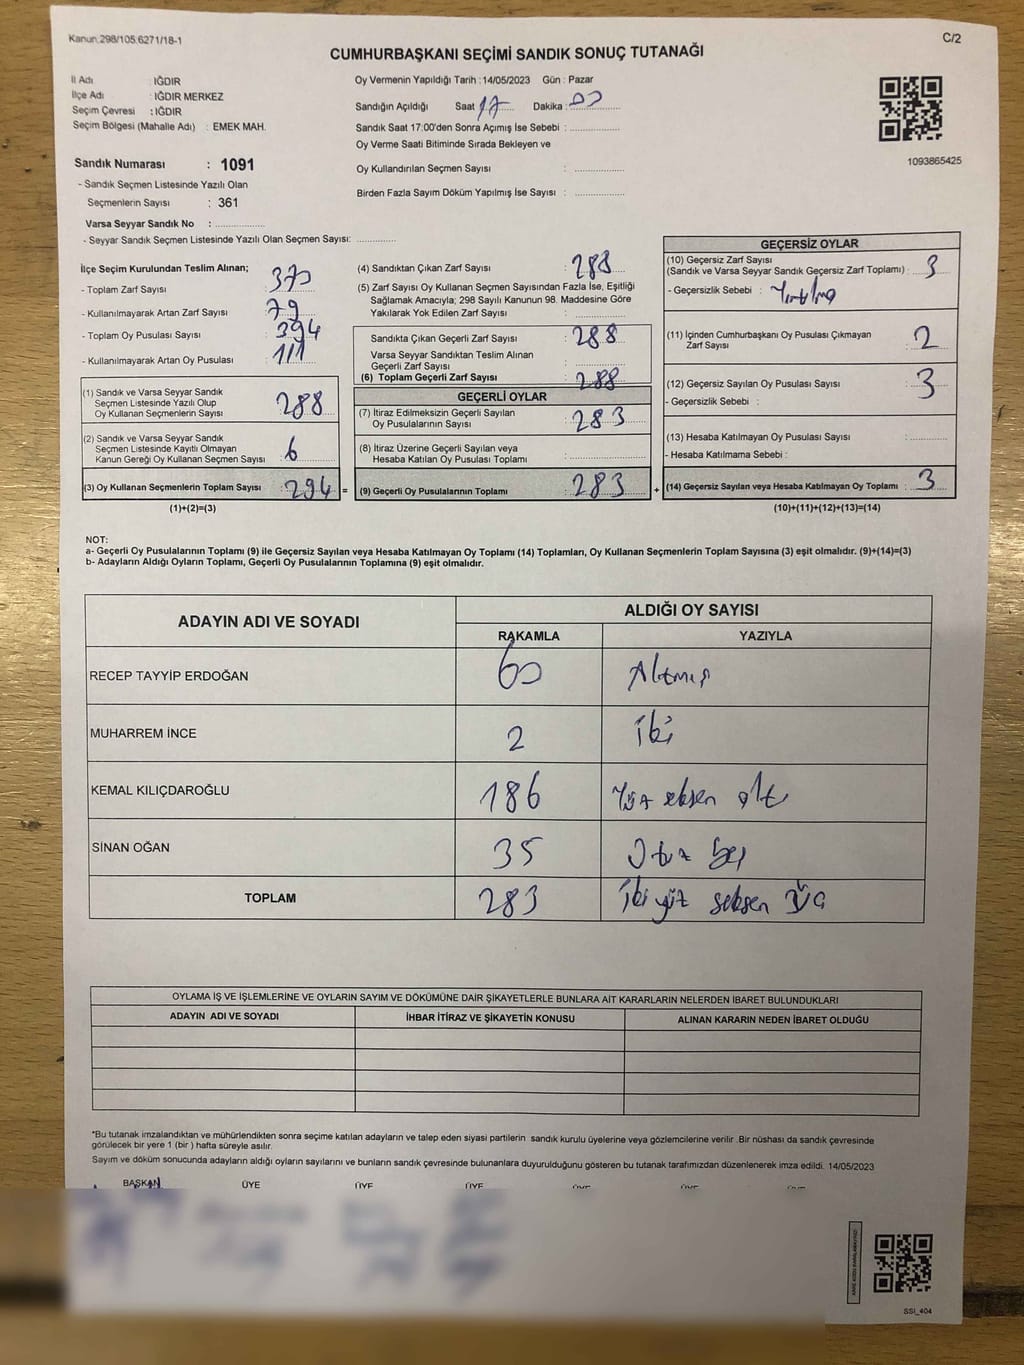 Kanun.298/105.6271/18-1
C/2
CUMHURBAŞKANI SEÇİMİ SANDIK SONUÇ TUTANAĞI
İl Adı : IĞDIR
İlçe Adı : IĞDIR MERKEZ
Seçim Çevresi : IĞDIR
Seçim Bölgesi (Mahalle Adı) : EMEK MAH.
Sandık Numarası : 1091
- Sandık Seçmen Listesinde Yazılı Olan
Seçmenlerin Sayısı : 361
Varsa Seyyar Sandık No :
- Seyyar Sandık Seçmen Listesinde Yazılı Olan Seçmen Sayısı:
Oy Vermenin Yapıldığı Tarih : 14/05/2023 Gün : Pazar
Sandığın Açıldığı Saat 17 Dakika : 00
Sandık Saat 17:00'den Sonra Açımış İse Sebebi :
Oy Verme Saati Bitiminde Sırada Bekleyen ve
Oy Kullandırılan Seçmen Sayısı :
Birden Fazla Sayım Döküm Yapılmış İse Sayısı :
1093865425
İlçe Seçim Kurulundan Teslim Alınan;
- Toplam Zarf Sayısı : 370
- Kullanılmayarak Artan Zarf Sayısı : 79
- Toplam Oy Pusulası Sayısı : 394
- Kullanılmayarak Artan Oy Pusulası : 111
(1) Sandık ve Varsa Seyyar Sandık
Seçmen Listesinde Yazılı Olup
Oy Kullanan Seçmenlerin Sayısı : 288
(2) Sandık ve Varsa Seyyar Sandık
Seçmen Listesinde Kayıtlı Olmayan
Kanun Gereği Oy Kullanan Seçmen Sayısı : 6
(3) Oy Kullanan Seçmenlerin Toplam Sayısı : 294 =
(1)+(2)=(3)
(4) Sandıktan Çıkan Zarf Sayısı : 288
(5) Zarf Sayısı Oy Kullanan Seçmen Sayısından Fazla İse, Eşitliği
Sağlamak Amacıyla; 298 Sayılı Kanunun 98. Maddesine Göre
Yakılarak Yok Edilen Zarf Sayısı :
Sandıkta Çıkan Geçerli Zarf Sayısı : 288
Varsa Seyyar Sandıktan Teslim Alınan
Geçerli Zarf Sayısı :
(6) Toplam Geçerli Zarf Sayısı : 288
GEÇERLİ OYLAR
(7) İtiraz Edilmeksizin Geçerli Sayılan
Oy Pusulalarının Sayısı : 283
(8) İtiraz Üzerine Geçerli Sayılan veya
Hesaba Katılan Oy Pusulası Toplamı :
(9) Geçerli Oy Pusulalarının Toplamı : 283 +
GEÇERSİZ OYLAR
(10) Geçersiz Zarf Sayısı
(Sandık ve Varsa Seyyar Sandık Geçersiz Zarf Toplamı) : 3
- Geçersizlik Sebebi : Yırtılma
(11) İçinden Cumhurbaşkanı Oy Pusulası Çıkmayan
Zarf Sayısı : 2
(12) Geçersiz Sayılan Oy Pusulası Sayısı : 3
- Geçersizlik Sebebi :
(13) Hesaba Katılmayan Oy Pusulası Sayısı :
- Hesaba Katılmama Sebebi :
(14) Geçersiz Sayılan veya Hesaba Katılmayan Oy Toplamı : 3
(10)+(11)+(12)+(13)=(14)
NOT:
a- Geçerli Oy Pusulalarının Toplamı (9) ile Geçersiz Sayılan veya Hesaba Katılmayan Oy Toplamı (14) Toplamları, Oy Kullanan Seçmenlerin Toplam Sayısına (3) eşit olmalıdır. (9)+(14)=(3)
b- Adayların Aldığı Oyların Toplamı, Geçerli Oy Pusulalarının Toplamına (9) eşit olmalıdır.
ADAYIN ADI VE SOYADI
ALDIĞI OY SAYISI
RAKAMLA YAZIYLA
RECEP TAYYİP ERDOĞAN 60 Altmış
MUHARREM İNCE 2 iki
KEMAL KILIÇDAROĞLU 186 Yüz seksen altı
SİNAN OĞAN 35 Otuz beş
TOPLAM 283 iki yüz seksen üç
OYLAMA İŞ VE İŞLEMLERİNE VE OYLARIN SAYIM VE DÖKÜMÜNE DAİR ŞİKAYETLERLE BUNLARA AİT KARARLARIN NELERDEN İBARET BULUNDUKLARI
ADAYIN ADI VE SOYADI İHBAR İTİRAZ VE ŞİKAYETİN KONUSU ALINAN KARARIN NEDEN İBARET OLDUĞU
*Bu tutanak imzalandıktan ve mühürlendikten sonra seçime katılan adayların ve talep eden siyasi partilerin sandık kurulu üyelerine veya gözlemcilerine verilir .Bir nüshası da sandık çevresinde
görülecek bir yere 1 (bir ) hafta süreyle asılır.
Sayım ve döküm sonucunda adayların aldığı oyların sayılarını ve bunların sandık çevresinde bulunanlara duyurulduğunu gösteren bu tutanak tarafımızdan düzenlenerek imza edildi. 14/05/2023
BAŞKAN ÜYE ÜYE ÜYE ÜYE ÜYE ÜYE
SSI_404